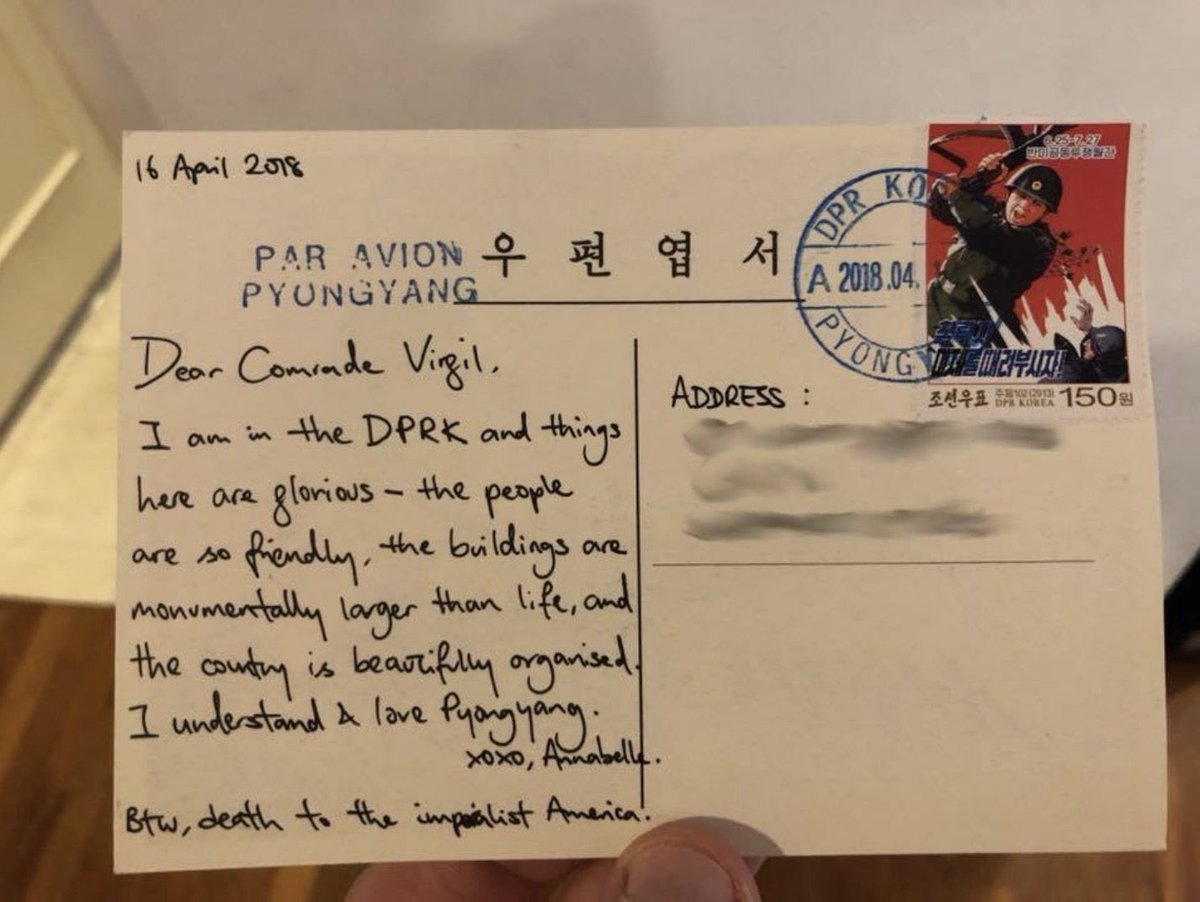 16 April 2018
PAR AVION
PYONGYANG
우편엽서
DPR KO
A 2018.04.
PYONGY
6.25-7.27
반미공동투쟁월간
미제를 때려부시자!
조선우표
주체102(2013)
DPR KOREA
150원
Dear Comrade Virgil,
I am in the DPRK and things
here are glorious – the people
are so friendly, the buildings are
monumentally larger than life, and
the country is beautifully organised.
I understand & love Pyongyang.
xoxo, Annabelle.
Btw, death to the imperialist America.
ADDRESS :